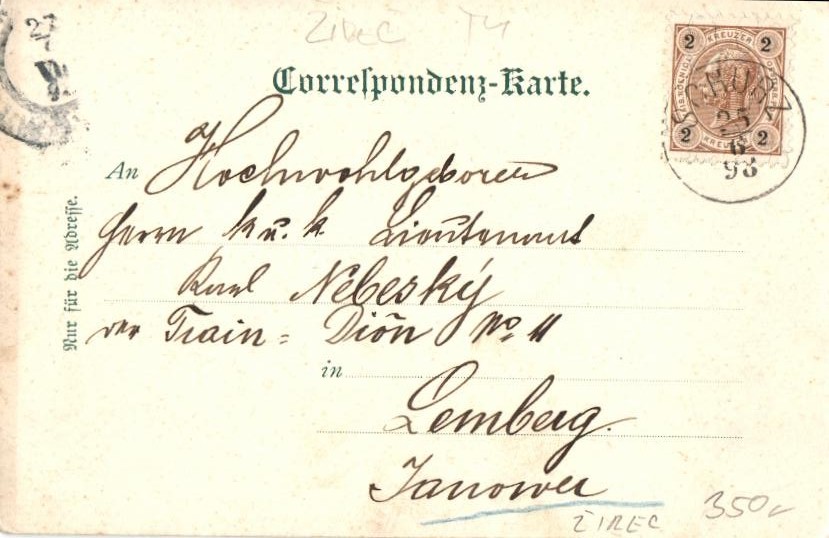 ŽIREČ T4
27
Correspondenz-Karte.
2 KREUZER 2
2 KREUZER 2
SCHURZ
25
6
98
An Hochwohlgeboren
Herrn k u. k. Lieutenant
Karl Nebeský
der Train = Dión No. 11
in
Lemberg.
Janower
Nur für die Adresse.
ŽIREČ 350,-